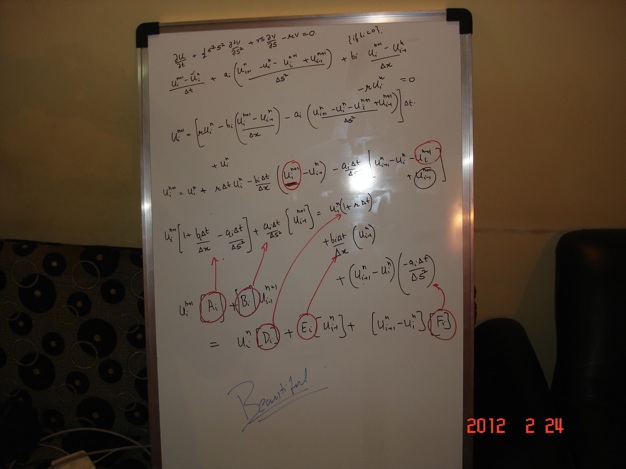 ∂V/∂t + ½ σ² s² ∂²V/∂s² + rs ∂V/∂s - rV = 0
(if bi<0)
(Ui^n+1 - Ui^n)/Δt + ai (Ui+1^n - Ui^n - Ui^n+1 + Ui-1^n+1)/ΔS² + bi (Ui^n+1 - Ui-1^n)/Δx
- rUi^n = 0
Ui^n+1 = [rUi^n - bi (Ui^n+1 - Ui-1^n)/Δx - ai (Ui+1^n - Ui^n - Ui^n+1 + Ui-1^n+1)/ΔS²] Δt
+ Ui^n
Ui^n+1 = Ui^n + rΔt Ui^n - biΔt/Δx (Ui^n+1 - Ui-1^n) - aiΔt/ΔS² [Ui+1^n - Ui^n - Ui^n+1
+ Ui-1^n+1]
Ui^n+1 [1 + biΔt/Δx - aiΔt/ΔS²] + aiΔt/ΔS² [Ui-1^n+1] = Ui^n (1 + rΔt)
+ biΔt/Δx (Ui-1^n)
+ (Ui+1^n - Ui^n) (-aiΔt/ΔS²)
Ui^n+1 [Ai] + [Bi] Ui-1^n+1
= Ui^n [Di] + Ei [Ui-1^n] + [Ui+1^n - Ui^n] [Fi]
Beautiful
2012 2 24